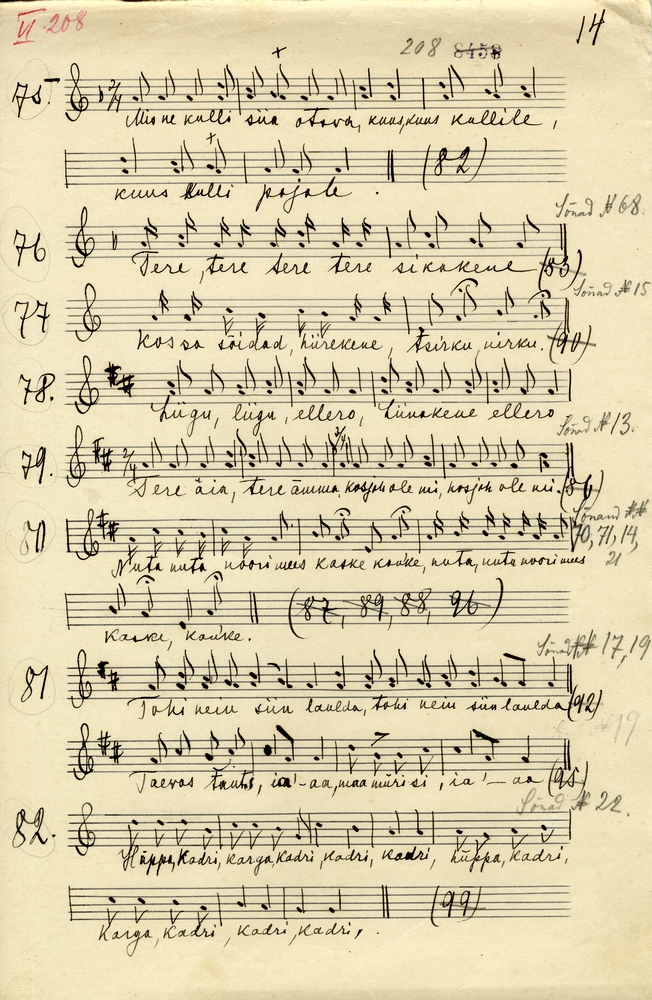 VI. 208
14
208 8458
75.
Mis ne kulli siia otava, kuus, kuus kullile,
kuus kulli pojale. (82)
Sõnad № 68.
76
Tere, tere tere tere sikakene (83)
Sõnad № 15
77
Kos sa sõidad, hiirekene, tsirku, nirku. (90)
78.
Liigu, liigu, ellero, linakene ellero
Sõnad № 13.
79.
Tere äia, tere ämma, kosjoh ole mi, kosjoh ole mi. (86)
80
Sõnad №№ 70, 71, 14, 21
Nuta nuta noorimees kaske kanke, nuta, nuta noorimees
kaske, kanke. (87, 89, 88, 96)
Sõnad №№ 17, 19
81
Tohi nein siin laulda, tohi nein siin laulda (92)
№ 19
Taevas , ia'-aa, maa mürisi, ia'-aa (95)
Sõnad № 22.
82.
Hüppa, Kadri, karga, Kadri, kadri, kadri, hüppa, kadri,
Karga, Kadri, kadri, kadri,. (99)